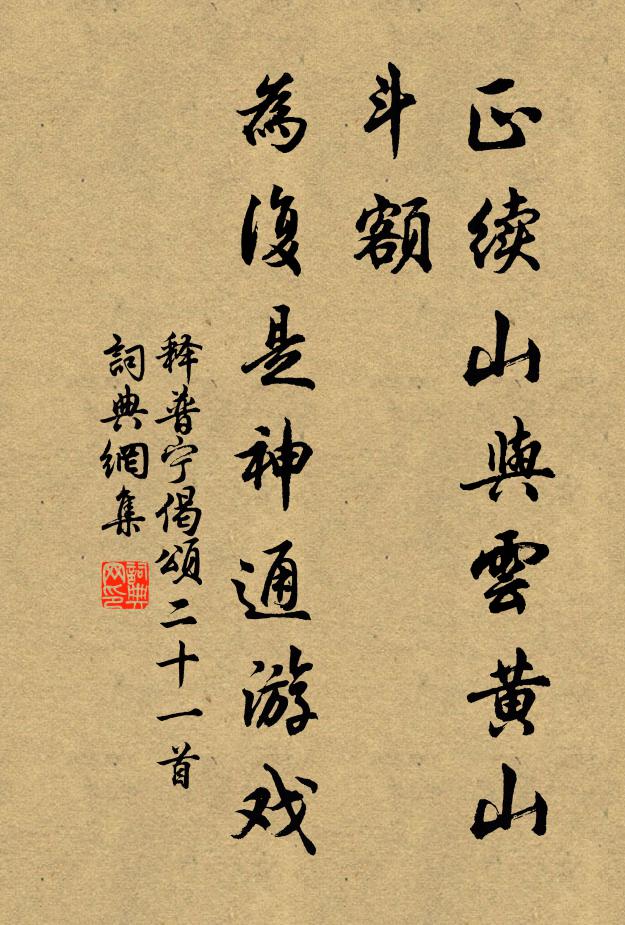 正续山與雲黄山
斗額
為復是神通游戏
释普宁偈頌二十一首
詞典網集
詞典网印